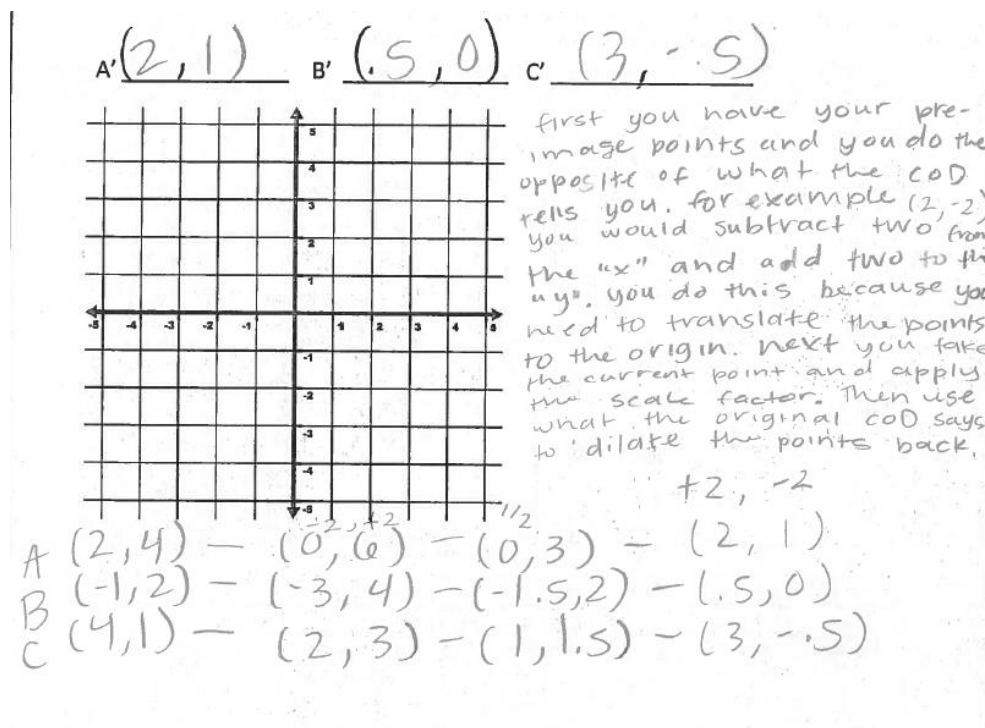 A' (2, 1) B' (.5, 0) C' (3, -.5)
first you have your pre-
image points and you do the
opposite of what the COD
tells you. for example (2,-2)
you would subtract two from
the "x" and add two to the
"y". you do this because you
need to translate the points
to the origin. next you take
the current point and apply
the scale factor. Then use
what the original COD says
to dilate the points back.
5
4
3
2
1
-5 -4 -3 -2 -1 1 2 3 4 5
-1
-2
-3
-4
-5
+2, -2
-2, +2 1/2
A (2,4) — (0,6) — (0,3) — (2, 1)
B (-1,2) — (-3, 4) — (-1.5,2) — (.5,0)
C (4,1) — (2,3) — (1,1.5) — (3, -.5)